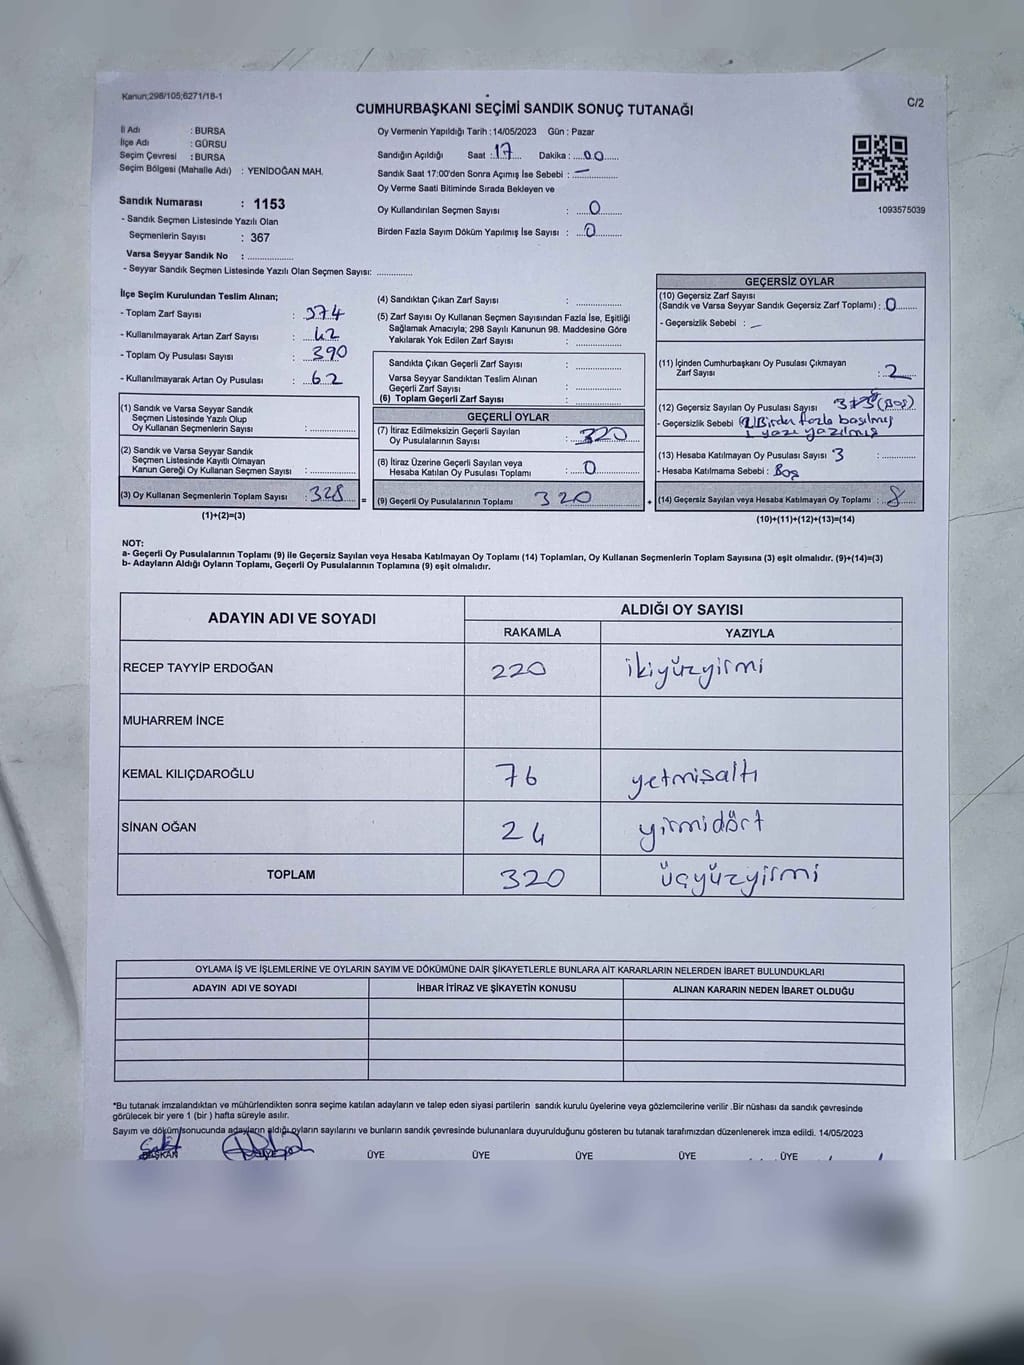 Kanun;298/105;6271/18-1
C/2
CUMHURBAŞKANI SEÇİMİ SANDIK SONUÇ TUTANAĞI
İl Adı : BURSA
İlçe Adı : GÜRSU
Seçim Çevresi : BURSA
Seçim Bölgesi (Mahalle Adı) : YENİDOĞAN MAH.
Oy Vermenin Yapıldığı Tarih : 14/05/2023 Gün : Pazar
Sandığın Açıldığı Saat : 17 Dakika : 00
Sandık Saat 17:00'den Sonra Açımış İse Sebebi : —
Oy Verme Saati Bitiminde Sırada Bekleyen ve
Oy Kullandırılan Seçmen Sayısı : 0
Birden Fazla Sayım Döküm Yapılmış İse Sayısı : 0
1093575039
Sandık Numarası : 1153
- Sandık Seçmen Listesinde Yazılı Olan
Seçmenlerin Sayısı : 367
Varsa Seyyar Sandık No :
- Seyyar Sandık Seçmen Listesinde Yazılı Olan Seçmen Sayısı:
İlçe Seçim Kurulundan Teslim Alınan;
- Toplam Zarf Sayısı : 374
- Kullanılmayarak Artan Zarf Sayısı : 42
- Toplam Oy Pusulası Sayısı : 390
- Kullanılmayarak Artan Oy Pusulası : 62
(1) Sandık ve Varsa Seyyar Sandık
Seçmen Listesinde Yazılı Olup
Oy Kullanan Seçmenlerin Sayısı :
(2) Sandık ve Varsa Seyyar Sandık
Seçmen Listesinde Kayıtlı Olmayan
Kanun Gereği Oy Kullanan Seçmen Sayısı :
(3) Oy Kullanan Seçmenlerin Toplam Sayısı : 328 =
(1)+(2)=(3)
(4) Sandıktan Çıkan Zarf Sayısı :
(5) Zarf Sayısı Oy Kullanan Seçmen Sayısından Fazla İse, Eşitliği
Sağlamak Amacıyla; 298 Sayılı Kanunun 98. Maddesine Göre
Yakılarak Yok Edilen Zarf Sayısı :
Sandıkta Çıkan Geçerli Zarf Sayısı :
Varsa Seyyar Sandıktan Teslim Alınan
Geçerli Zarf Sayısı :
(6) Toplam Geçerli Zarf Sayısı :
GEÇERLİ OYLAR
(7) İtiraz Edilmeksizin Geçerli Sayılan
Oy Pusulalarının Sayısı : 320
(8) İtiraz Üzerine Geçerli Sayılan veya
Hesaba Katılan Oy Pusulası Toplamı : 0
(9) Geçerli Oy Pusulalarının Toplamı 320 +
GEÇERSİZ OYLAR
(10) Geçersiz Zarf Sayısı
(Sandık ve Varsa Seyyar Sandık Geçersiz Zarf Toplamı) : 0
- Geçersizlik Sebebi : —
(11) İçinden Cumhurbaşkanı Oy Pusulası Çıkmayan
Zarf Sayısı : 2
(12) Geçersiz Sayılan Oy Pusulası Sayısı 3 (Boş)
- Geçersizlik Sebebi Birden fazla basılmış
1 yazı yazılmış
(13) Hesaba Katılmayan Oy Pusulası Sayısı 3 :
- Hesaba Katılmama Sebebi : Boş
(14) Geçersiz Sayılan veya Hesaba Katılmayan Oy Toplamı : 8
(10)+(11)+(12)+(13)=(14)
NOT:
a- Geçerli Oy Pusulalarının Toplamı (9) ile Geçersiz Sayılan veya Hesaba Katılmayan Oy Toplamı (14) Toplamları, Oy Kullanan Seçmenlerin Toplam Sayısına (3) eşit olmalıdır. (9)+(14)=(3)
b- Adayların Aldığı Oyların Toplamı, Geçerli Oy Pusulalarının Toplamına (9) eşit olmalıdır.
ADAYIN ADI VE SOYADI
ALDIĞI OY SAYISI
RAKAMLA YAZIYLA
RECEP TAYYİP ERDOĞAN 220 ikiyüzyirmi
MUHARREM İNCE
KEMAL KILIÇDAROĞLU 76 yetmişaltı
SİNAN OĞAN 24 yirmidört
TOPLAM 320 üçyüzyirmi
OYLAMA İŞ VE İŞLEMLERİNE VE OYLARIN SAYIM VE DÖKÜMÜNE DAİR ŞİKAYETLERLE BUNLARA AİT KARARLARIN NELERDEN İBARET BULUNDUKLARI
ADAYIN ADI VE SOYADI İHBAR İTİRAZ VE ŞİKAYETİN KONUSU ALINAN KARARIN NEDEN İBARET OLDUĞU
*Bu tutanak imzalandıktan ve mühürlendikten sonra seçime katılan adayların ve talep eden siyasi partilerin sandık kurulu üyelerine veya gözlemcilerine verilir .Bir nüshası da sandık çevresinde
görülecek bir yere 1 (bir ) hafta süreyle asılır.
Sayım ve döküm sonucunda adayların aldığı oyların sayılarını ve bunların sandık çevresinde bulunanlara duyurulduğunu gösteren bu tutanak tarafımızdan düzenlenerek imza edildi. 14/05/2023
BAŞKAN ÜYE ÜYE ÜYE ÜYE ÜYE